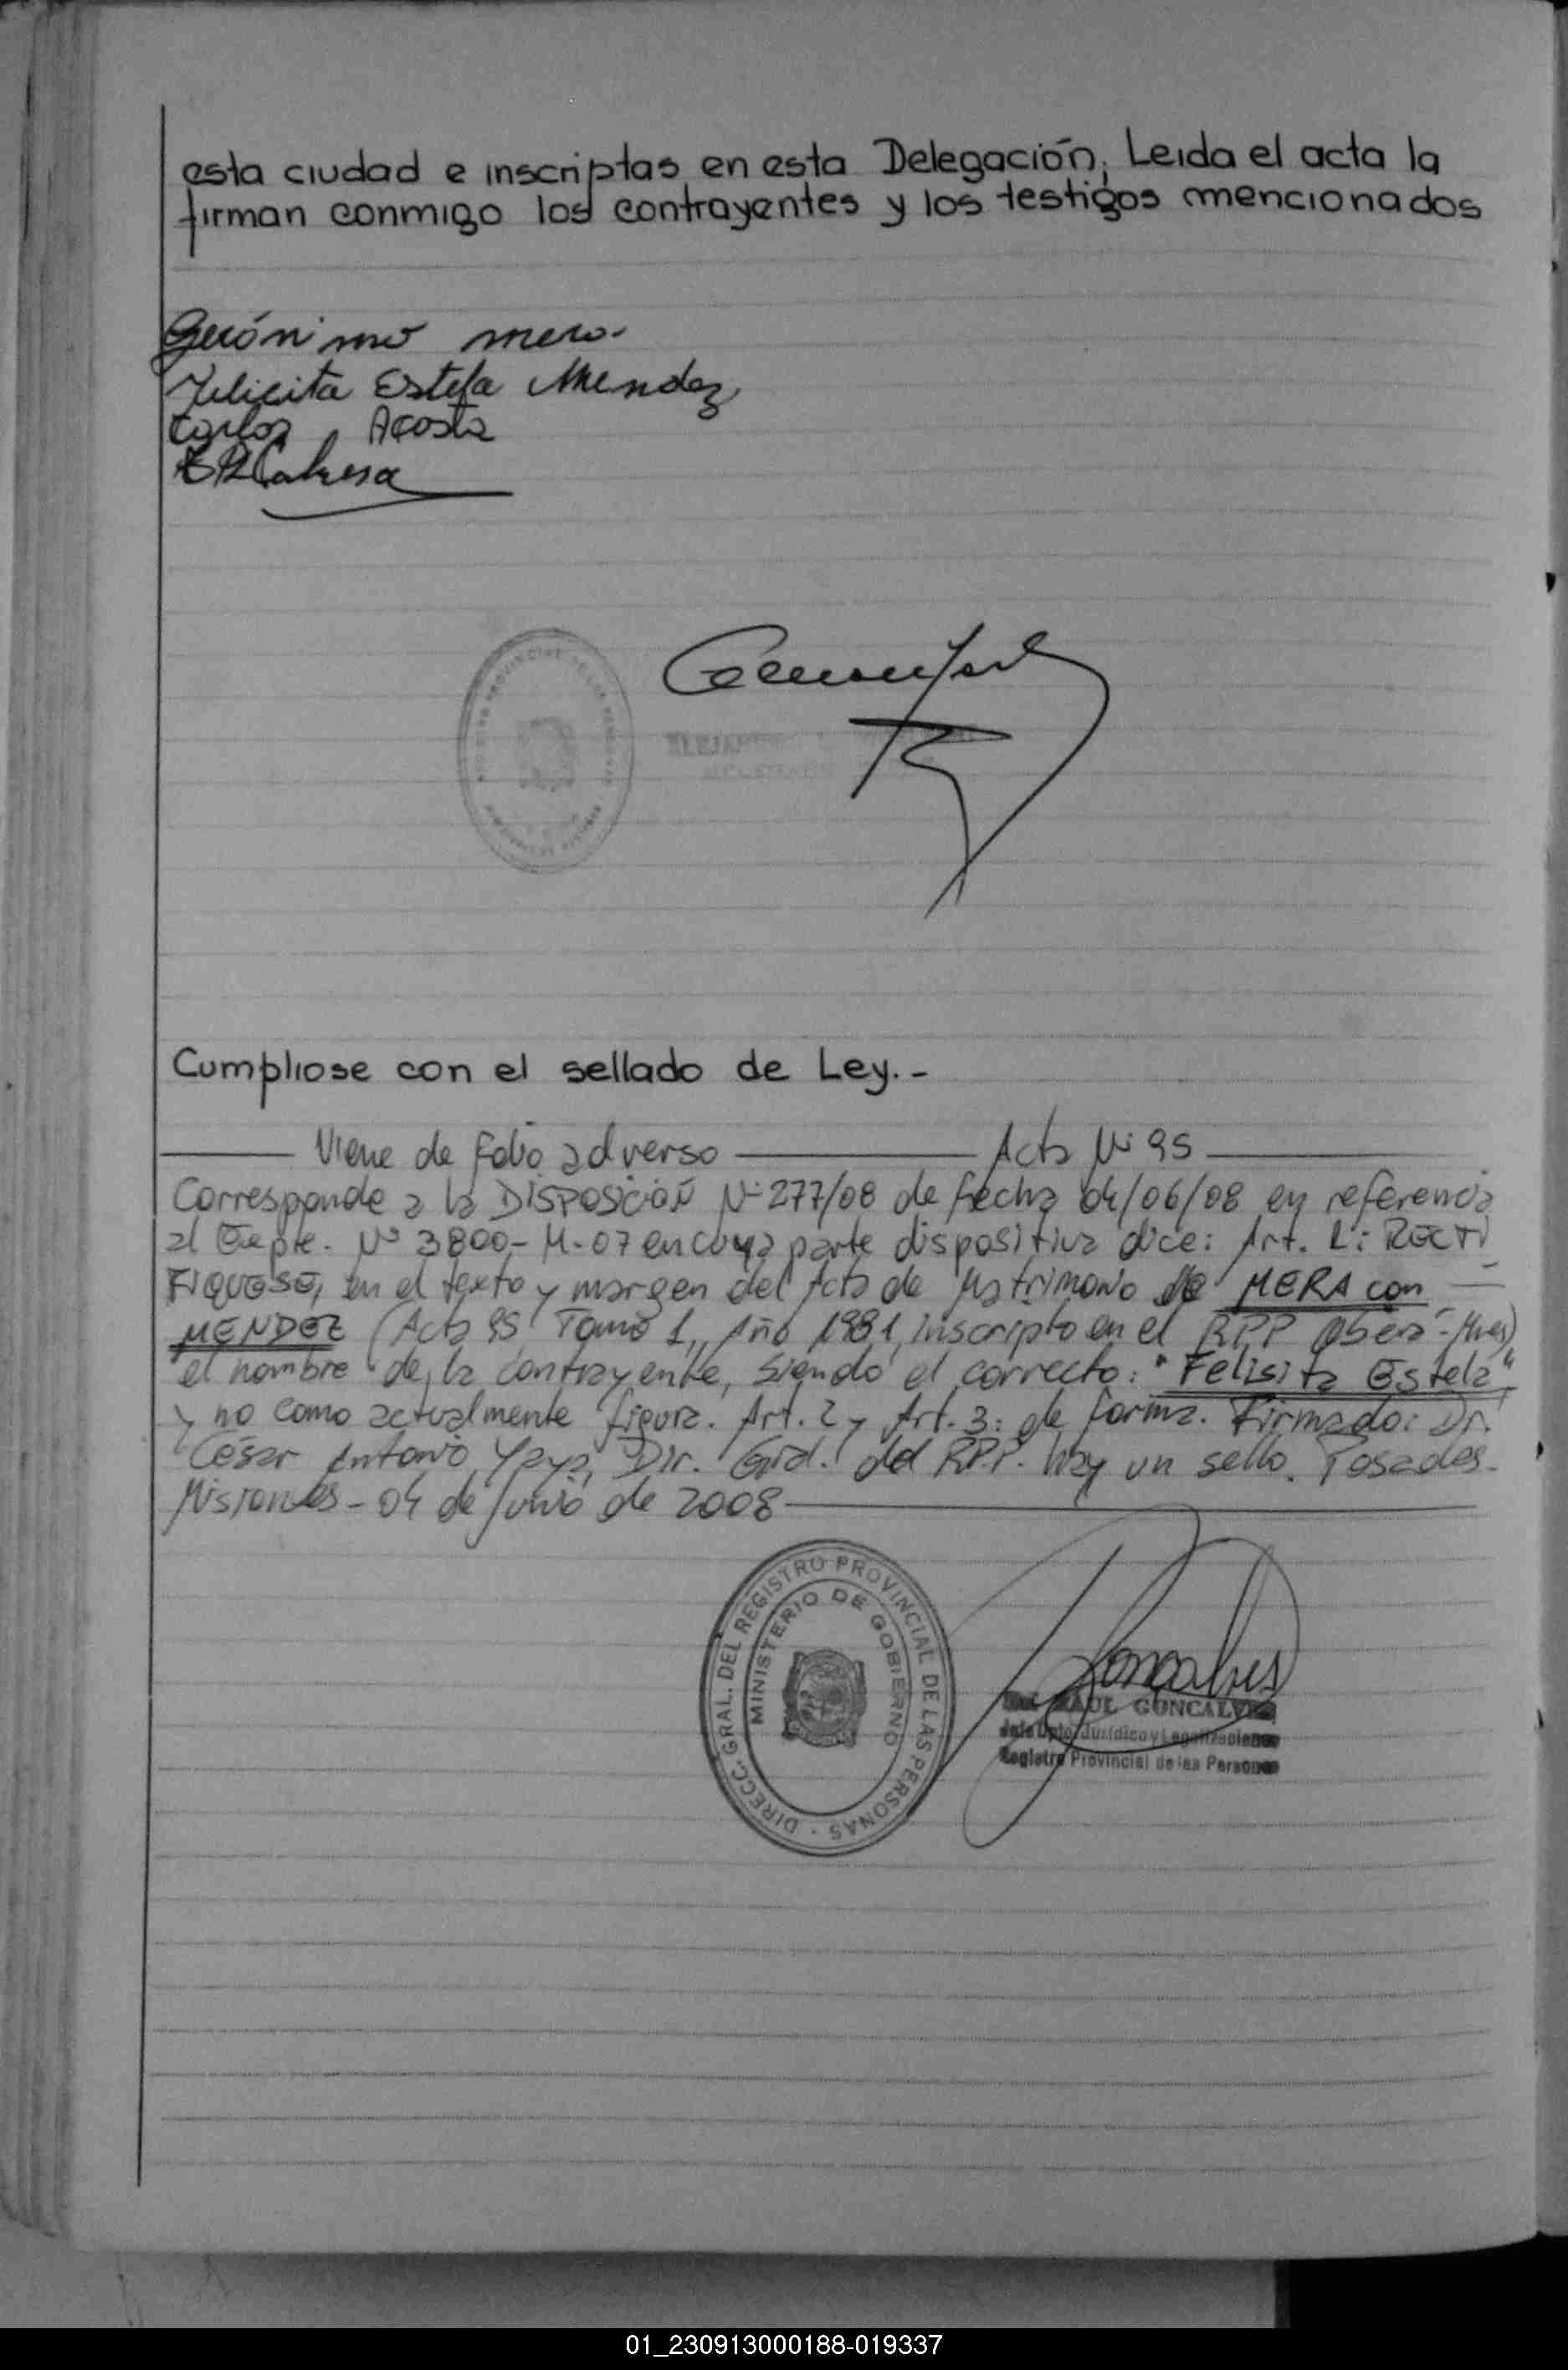 esta ciudad e inscriptas en esta Delegación, Leida el acta la
firman conmigo los contrayentes y los testigos mencionados
Gerónimo mera
Felicita Estela Mendez
Carlos Acosta
Cumpliose con el sellado de Ley.-
Viene de folio adverso Acta Nº 95
Corresponde a la DISPOSICIÓN Nº 277/08 de fecha 04/06/08 en referencia
al Expte. Nº 3800-M-07 en cuya parte dispositiva dice: Art. 1º: RECTI
FIQUESE, en el texto y margen del Acta de Matrimonio de MERA con
MENDEZ (Acta 95 Tomo 1, Año 1981, inscripto en el RPP Oberá-Mnes)
el nombre de la contrayente, siendo el correcto: "Felisita Estela"
y no como actualmente figura. Art. 2 y Art. 3: de forma. Firmado: Dr.
César Antonio Yaya, Dir. Gral. del RPP. hay un sello. Posadas-
Misiones-04 de Junio de 2008
DIRECC. GRAL. DEL REGISTRO PROVINCIAL DE LAS PERSONAS
MINISTERIO DE GOBIERNO
RAUL GONCALVES
Jefe Dpto. Jurídico y Legalizaciones
Registro Provincial de las Personas
01_230913000188-019337